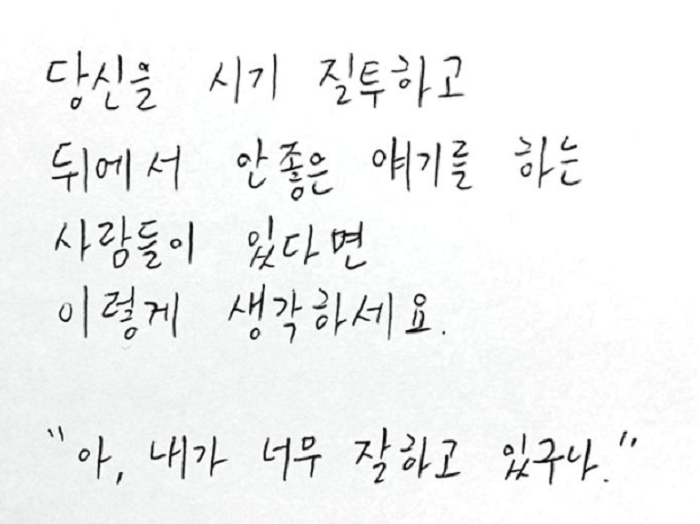 당신을 시기 질투하고
뒤에서 안좋은 얘기를 하는
사람들이 있다면
이렇게 생각하세요.
"아, 내가 너무 잘하고 있구나."